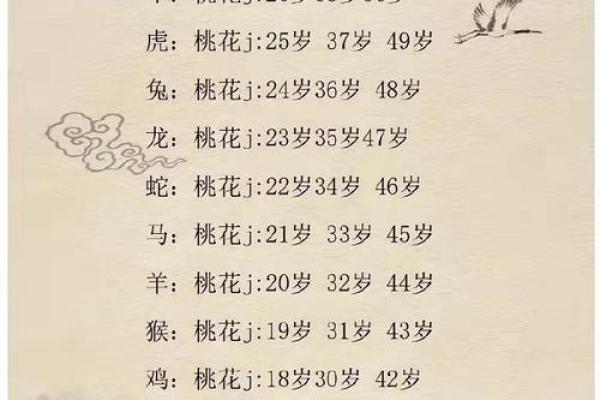 虎：桃花j:25岁 37岁 49岁
兔：桃花j:24岁36岁 48岁
龙：桃花j:23岁35岁47岁
蛇：桃花j:22岁34岁 46岁
马：桃花j:21岁 33岁 45岁
羊：桃花j:20岁 32岁 44岁
猴：桃花j:19岁 31岁 43岁
鸡：桃花j:18岁30岁 42岁